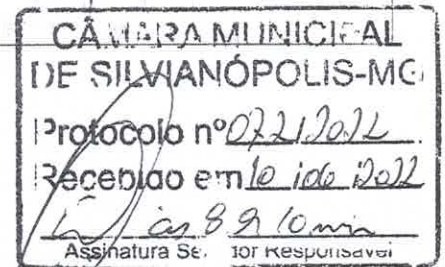 CÂMARA MUNICIPAL
DE SILVIANÓPOLIS-MG
Protocolo nº 072/2022
Recebido em 10 2022
às 8 h 10 min
Assinatura Se. Responsável